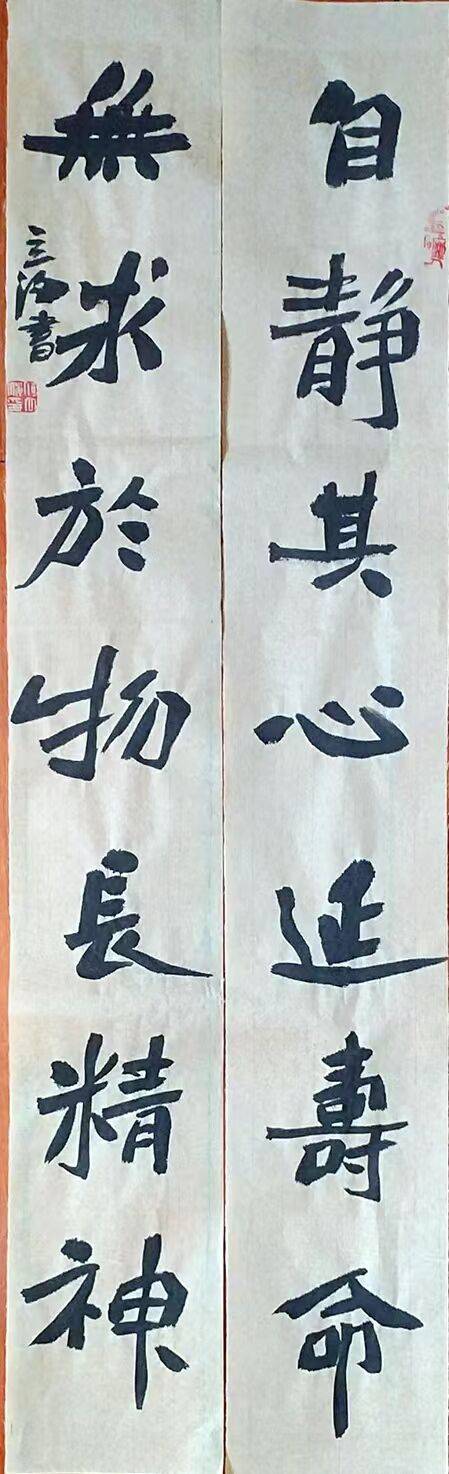 自靜其心延壽命
無求於物長精神
立海書